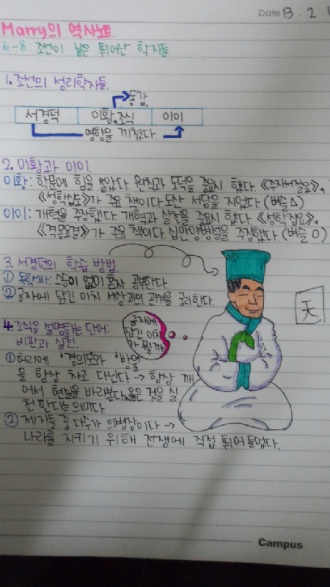 Date 13. 2.
Marry의 역사노트
6-8. 조선이 낳은 뛰어난 학자들
1. 조선의 성리학자들.
동갑
서경덕 이황, 조식 이이
영향을 끼쳤다
2. 이황과 이이
이황: 학문에 힘을 쏟았다 원칙과 도덕을 중요시 했다 《주자서절요》,
《성학십도》가 주요 책이다 도산 서당을 지었다 (벼슬△)
이이: 개혁을 주장했다 개혁과 실천을 중요시 했다 《성학집요》,
《격몽요결》가 주요 책이다 십만양병설을 주장했다 (벼슬 O)
3. 서경덕의 학습 방법
① 독학파: 스승이 없이 혼자 공부한다.
② 글자에 담긴 이치 세상과의 관계를 궁리한다.
天
글자에 담긴 이치가 뭘까
4. 조식을 설명하는 단어:
비판과 실천
① 허리에 '경의도'와 방울
을 항상 차고 다닌다 → 항상 깨
어서 현실을 바라본다 옳은 것을 실
천 한다는 의미다
② 제자들 중 다수가 의병장이다 →
나라를 지키기 위해 전쟁에 직접 뛰어들었다.
Campus